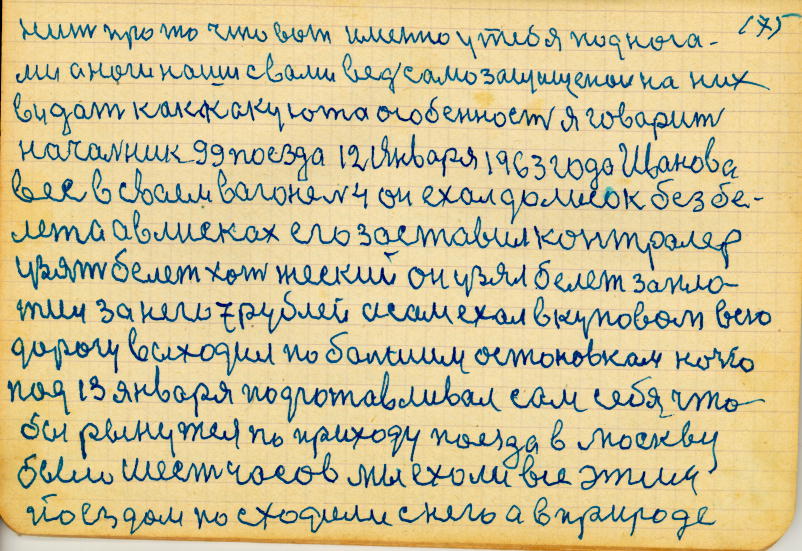 (75
нит про то что вот именно у тебя под нога-
ми а ноги наши с вами ведь самозащищеной на них
видат как какуюта особенност я говарит
началник 99 поезда 12 Января 1963 года Иванова
вес в своем вагоне N 4 он ехал до лисок без бе-
лета а в лисках его заставил контралер
узят белет хот жеский он узял белет запла-
тил за него 7 рублей а сам ехал в куповом всю
дорогу выходил по балшим остоновкам ночю
под 13 января подготавливал сам себя что
бы ринутся по приходу поезда в москву
было шест часов мы ехоли все этим
поездом по сходили с него а в природе